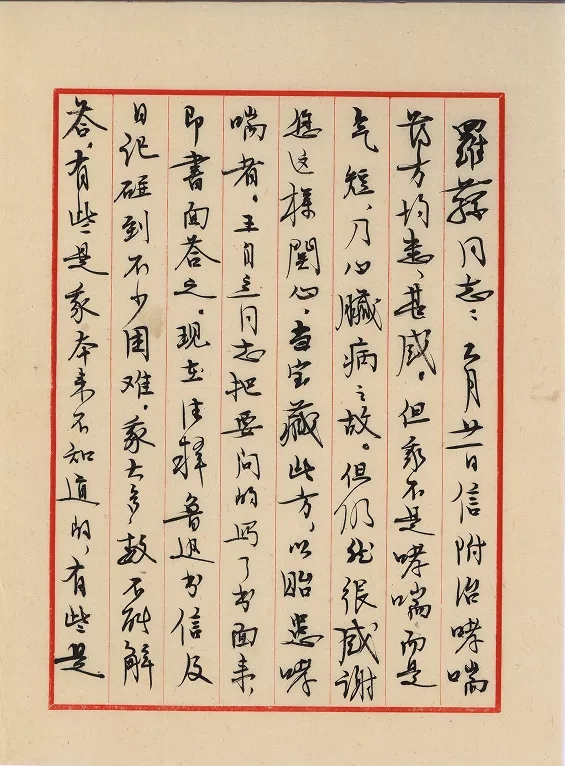 羅蓀同志:二月廿一日信附治哮喘
药方均悉,甚感。但我不是哮喘而是
气短,乃心臟病之故。但仍然很感谢
您这样関心,当宝藏此方,以貽患哮
喘者。王自立同志把要问的写了书面来,
即書面答之。现在注释鲁迅书信及
日记碰到不少困难。我大多数不能解
答,有些是我本来不知道的,有些是